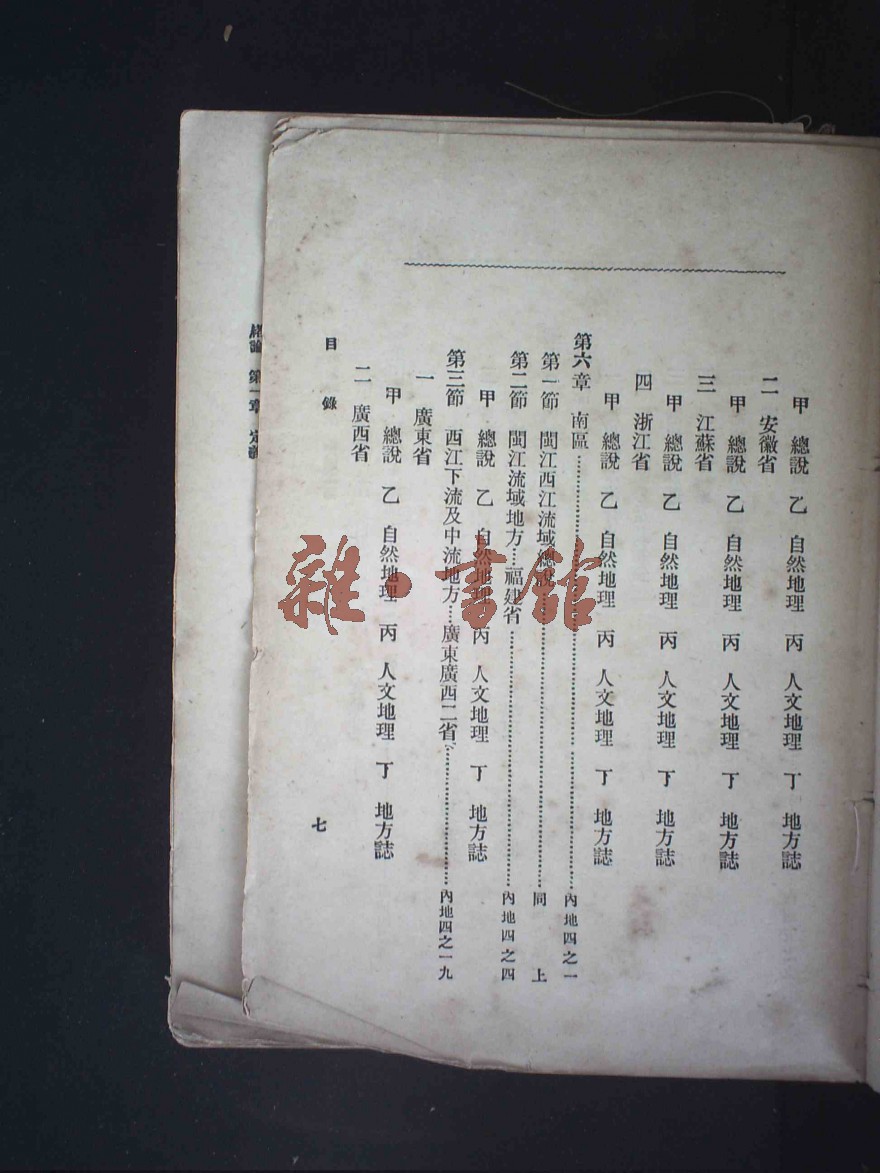 甲　總說　乙　自然地理　丙　人文地理　丁　地方誌
二　安徽省
甲　總說　乙　自然地理　丙　人文地理　丁　地方誌
三　江蘇省
甲　總說　乙　自然地理　丙　人文地理　丁　地方誌
四　浙江省
甲　總說　乙　自然地理　丙　人文地理　丁　地方誌
第六章　南區……內地四之一
第一節　閩江西江流域總說……同上
第二節　閩江流域地方……福建省……內地四之四
甲　總說　乙　自然地理　丙　人文地理　丁　地方誌
第三節　西江下流及中流地方……廣東廣西二省……內地四之一九
一　廣東省
甲　總說　乙　自然地理　丙　人文地理　丁　地方誌
二　廣西省
目錄
七
緒論　第一章
雜·書館